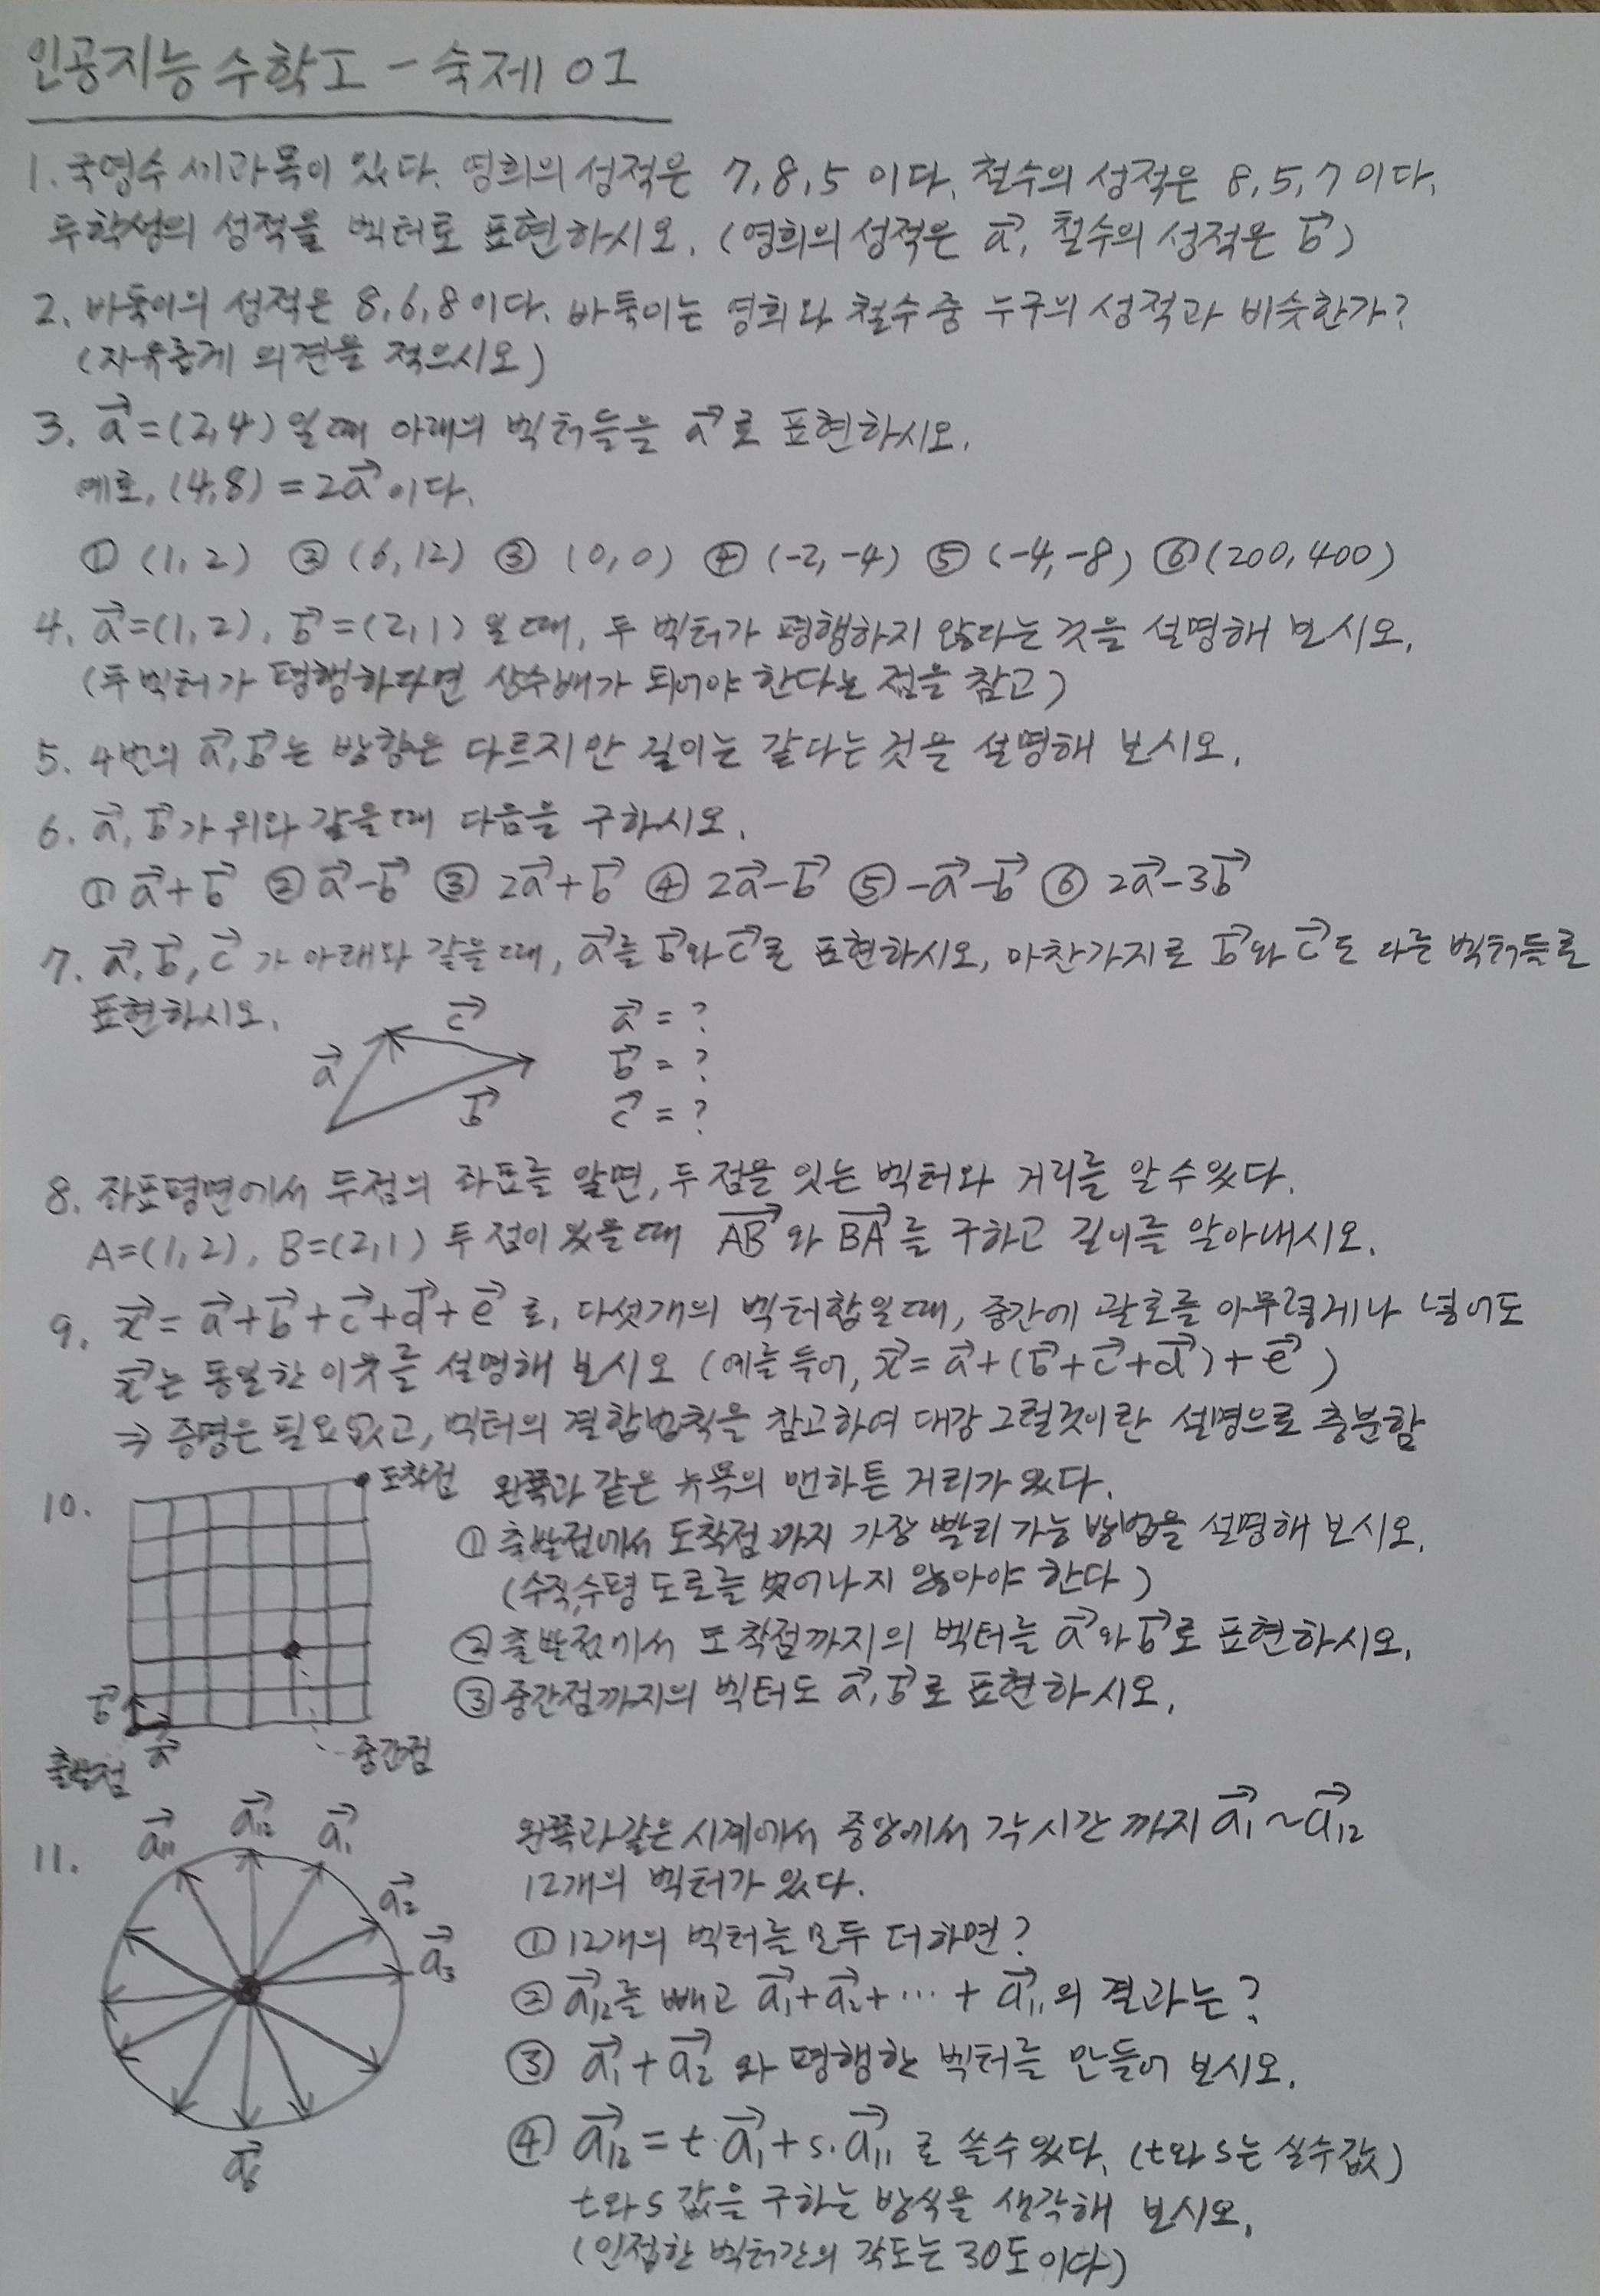 인공지능 수학 I - 숙제 01
1. 국영수 세과목이 있다. 영희의 성적은 7, 8, 5 이다. 철수의 성적은 8, 5, 7 이다.
두학생의 성적을 벡터로 표현하시오. (영희의 성적은 a⃗, 철수의 성적은 b⃗)
2. 바둑이의 성적은 8, 6, 8 이다. 바둑이는 영희와 철수 중 누구의 성적과 비슷한가?
(자유롭게 의견을 적으시오)
3. a⃗ = (2, 4) 일때 아래의 벡터들을 a⃗로 표현하시오.
예로, (4, 8) = 2a⃗ 이다.
① (1, 2) ② (6, 12) ③ (0, 0) ④ (-2, -4) ⑤ (-4, -8) ⑥ (200, 400)
4. a⃗ = (1, 2), b⃗ = (2, 1) 일 때, 두 벡터가 평행하지 않다는 것을 설명해 보시오.
(두 벡터가 평행하다면 상수배가 되어야 한다는 점을 참고)
5. 4번의 a⃗, b⃗는 방향은 다르지만 길이는 같다는 것을 설명해 보시오.
6. a⃗, b⃗가 위와 같을때 다음을 구하시오.
① a⃗ + b⃗ ② a⃗ - b⃗ ③ 2a⃗ + b⃗ ④ 2a⃗ - b⃗ ⑤ -a⃗ - b⃗ ⑥ 2a⃗ - 3b⃗
7. a⃗, b⃗, c⃗가 아래와 같을 때, a⃗를 b⃗와 c⃗로 표현하시오, 마찬가지로 b⃗와 c⃗도 다른 벡터들로
표현하시오.
a⃗ b⃗ c⃗
a⃗ = ?
b⃗ = ?
c⃗ = ?
8. 좌표평면에서 두점의 좌표를 알면, 두 점을 잇는 벡터와 거리를 알 수 있다.
A = (1, 2), B = (2, 1) 두 점이 있을 때 AB⃗와 BA⃗를 구하고 길이를 알아내시오.
9. x⃗ = a⃗ + b⃗ + c⃗ + d⃗ + e⃗로, 다섯개의 벡터합일때, 중간에 괄호를 아무렇게나 넣어도
x⃗는 동일한 이유를 설명해 보시오 (예를 들어, x⃗ = a⃗ + (b⃗ + c⃗ + d⃗) + e⃗)
⇒ 증명은 필요없고, 벡터의 결합법칙을 참고하여 대강 그럴것이란 설명으로 충분함
10. 도착점
b⃗ a⃗
출발점 중간점
왼쪽과 같은 뉴욕의 맨하튼 거리가 있다.
① 출발점에서 도착점까지 가장 빨리 가능 방법을 설명해 보시오.
(수직, 수평 도로를 벗어나지 않아야 한다)
② 출발점에서 도착점까지의 벡터를 a⃗와 b⃗로 표현하시오.
③ 중간점까지의 벡터도 a⃗, b⃗로 표현하시오.
11. a⃗₁₁ a⃗₁₂ a⃗₁ a⃗₂ a⃗₃ a⃗₆
왼쪽과 같은 시계에서 중앙에서 각 시간 까지 a⃗₁ ~ a⃗₁₂
12개의 벡터가 있다.
① 12개의 벡터를 모두 더하면?
② a⃗₁₂를 빼고 a⃗₁ + a⃗₂ + ⋯ + a⃗₁₁의 결과는?
③ a⃗₁ + a⃗₂ 와 평행한 벡터를 만들어 보시오.
④ a⃗₁₂ = t·a⃗₁ + s·a⃗₁₁로 쓸수 있다. (t와 s는 실수값)
t와 s 값을 구하는 방식을 생각해 보시오.
(인접한 벡터간의 각도는 30도이다)